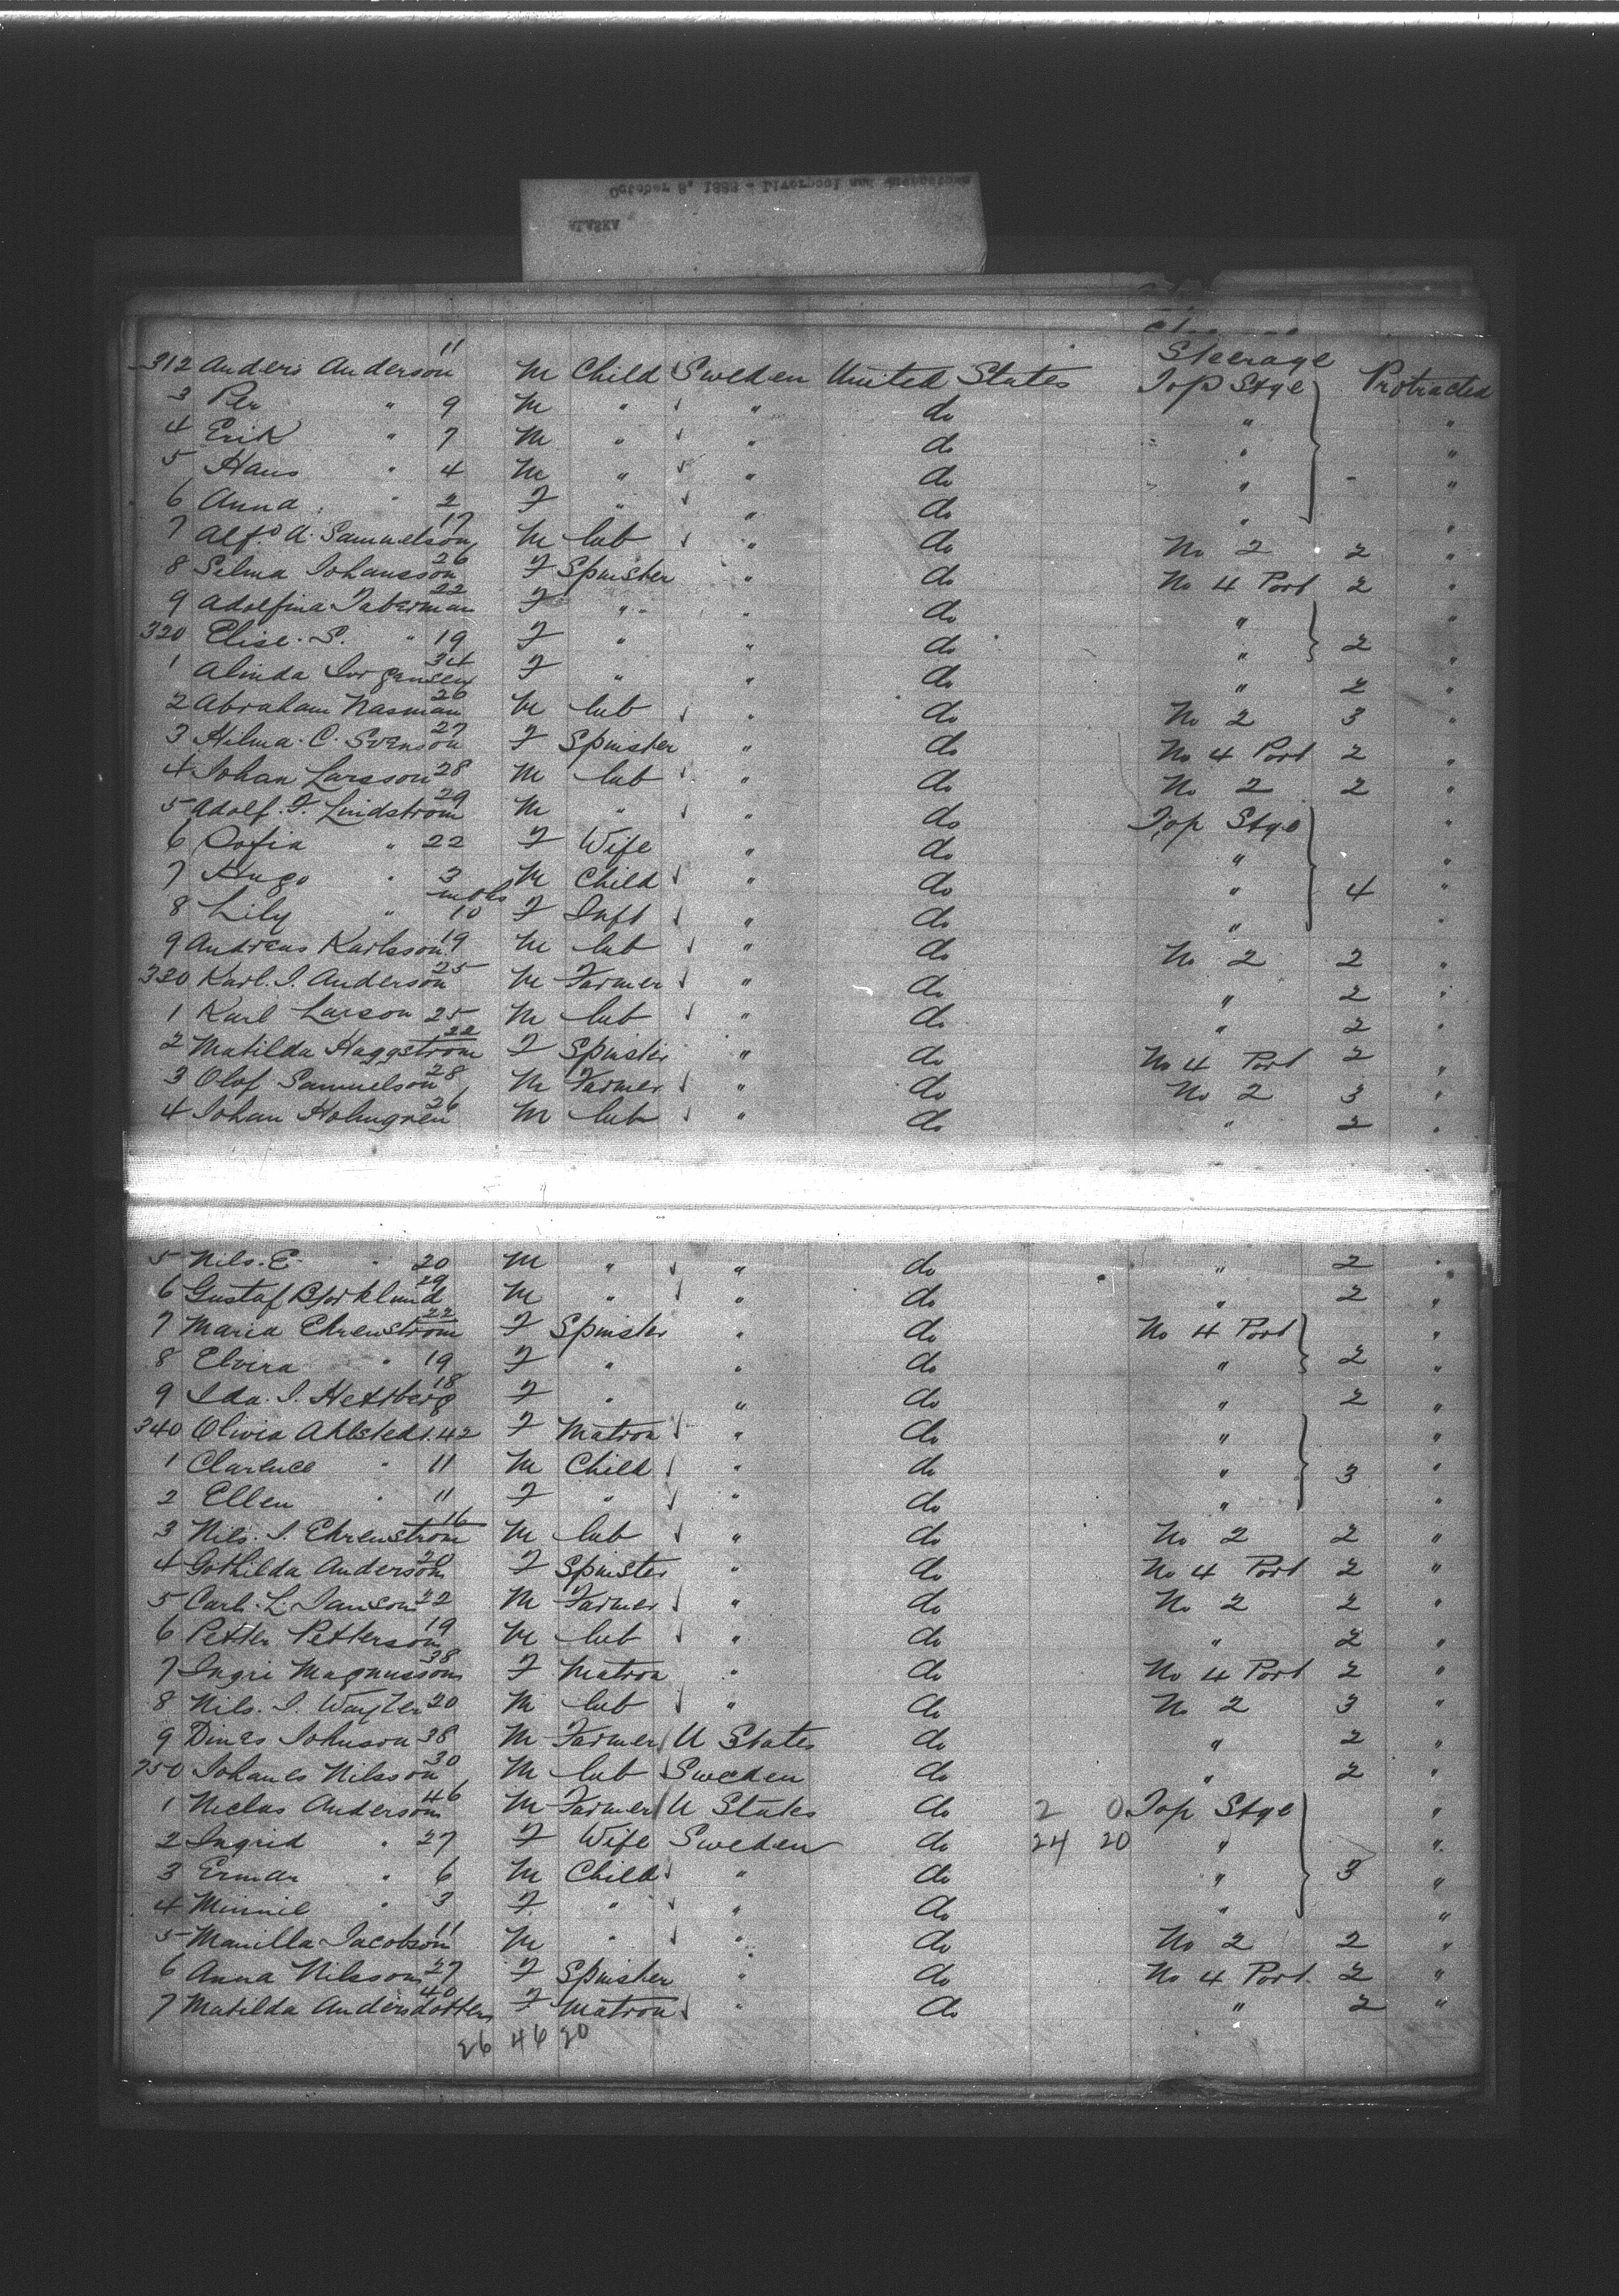 October 8, 1888 - Liverpool and Queenstown
ALASKA
Steerage
312 Anders Anderson 11 M Child Sweden United States Top Stge Protracted
3 Per " 9 M " " do " "
4 Erik " 7 M " " do " "
5 Hans " 4 M " " do " "
6 Anna " 2 F " " do " "
7 Alfd A. Samuelson 17 M lab " do No 2 2 "
8 Selma Johansson 26 F Spinster " do No 4 Port 2 "
9 Adolfina Taberman 22 F " " do " "
320 Elise. S. " 19 F " " do " 2 "
1 Alinda Jorgensen 34 F " " do " 2 "
2 Abraham Nasman 26 M lab " do No 2 3 "
3 Hilma. C. Svenson 27 F Spinster " do No 4 Port 2 "
4 Johan Larsson 28 M lab " do No 2 2 "
5 Adolf. F. Lindstrom 29 M " " do Top Stge "
6 Sofia " 22 F Wife " do " "
7 Hugo " 3 M Child " do " 4 "
8 Lily " mths 10 F Inft " do " "
9 Andreas Karlsson 19 M lab " do No 2 2 "
330 Karl. I. Anderson 25 M Farmer " do " 2 "
1 Karl Larson 25 M lab " do " 2 "
2 Matilda Haggstrom 22 F Spinster " do No 4 Port 2 "
3 Olof Samuelson 28 M Farmer " do No 2 3 "
4 Johan Holmgren 26 M lab " do " 2 "
5 Nils. E. " 20 M " " do " 2 "
6 Gustaf Bjorklund 29 M " " do " 2 "
7 Maria Ehrenstrom 22 F Spinster " do No 4 Port "
8 Elvira " 19 F " " do " 2 "
9 Ida. I. 18 F " " do " 2 "
340 Olivia Ahlstedt 42 F Matron " do " "
1 Clarence " 11 M Child " do " 3 "
2 Ellen " 11 F " " do " "
3 Nils. I. Ehrenstrom 16 M lab " do No 2 2 "
4 Gothilda Anderson F Spinster " do No 4 Port 2 "
5 Carl. L. Janson 22 M Farmer " do No 2 2 "
6 Petter Petterson 19 M lab " do " 2 "
7 Ingri Magnusson 38 F Matron " do No 4 Port 2 "
8 Nils. I. 20 M lab " do No 2 3 "
9 Johnson 38 M Farmer U States do " 2 "
350 Johanes Nilsson 30 M lab Sweden do " 2 "
1 Niclas Anderson 46 M Farmer U States do 2 0 Top Stge "
2 Ingrid " 27 F Wife Sweden do 24 20 " "
3 Erman " 6 M Child " do " 3 "
4 Minnie " 3 F " " do " "
5 Manilla Jacobson 11 M " " do No 2 2 "
6 Anna Nilsson 27 F Spinster " do No 4 Port. 2 "
7 Matilda Andersdotter 40 F Matron " do " 2 "
26 46 20